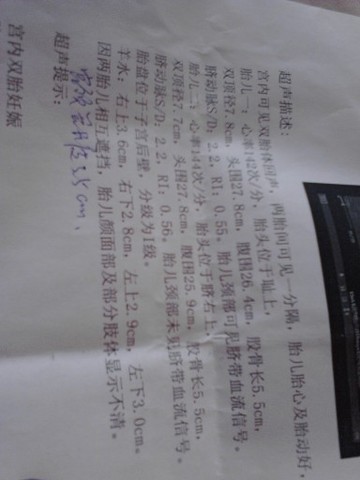 超声描述：
宫内可见双胎体回声，两胎间可见一分隔，胎儿胎心及胎动好，
胎儿一：心率142次/分，胎头位于耻上，
双顶径7.8cm，头围27.8cm，腹围26.4cm，股骨长5.5cm，
脐动脉S/D：2.2，RI：0.55。胎儿颈部可见脐带血流信号。
胎儿二：心率144次/分，胎头位于脐右上，
双顶径7.7cm，头围27.8cm，腹围25.9cm，股骨长5.5cm，
脐动脉S/D：2.2，RI：0.56。胎儿颈部未见脐带血流信号。
胎盘位于子宫后壁，分级为I级。
羊水：右上3.6cm，右下2.8cm，左上2.9cm，左下3.0cm。
因两胎儿相互遮挡，胎儿颜面部及部分肢体显示不清。
cm.
超声提示：
宫内双胎妊娠